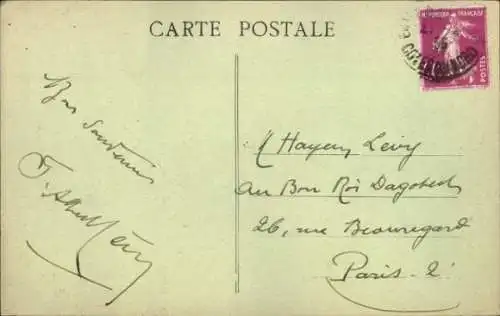 CARTE POSTALE
RÉPUBLIQUE FRANÇAISE
POSTES
Bon Souvenir
Lévy
Hayem Lévy
Au Bon Roi Dagobert
26, rue Beauregard
Paris - 2